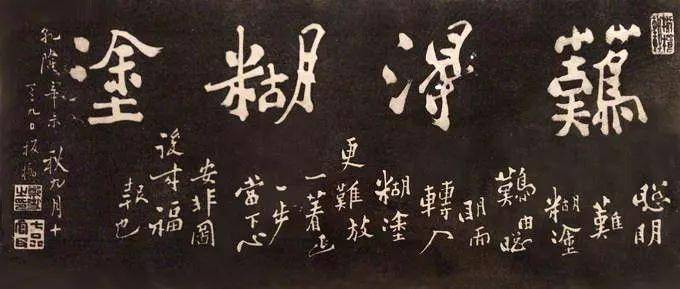 難得糊塗
聰明
難
糊塗
難由聰
明而
轉入
糊塗
更難放
一着退
一步
當下心
安非圖
後來福
報也
乾隆辛未秋九月十
九日板橋
鄭燮之印
七品官耳